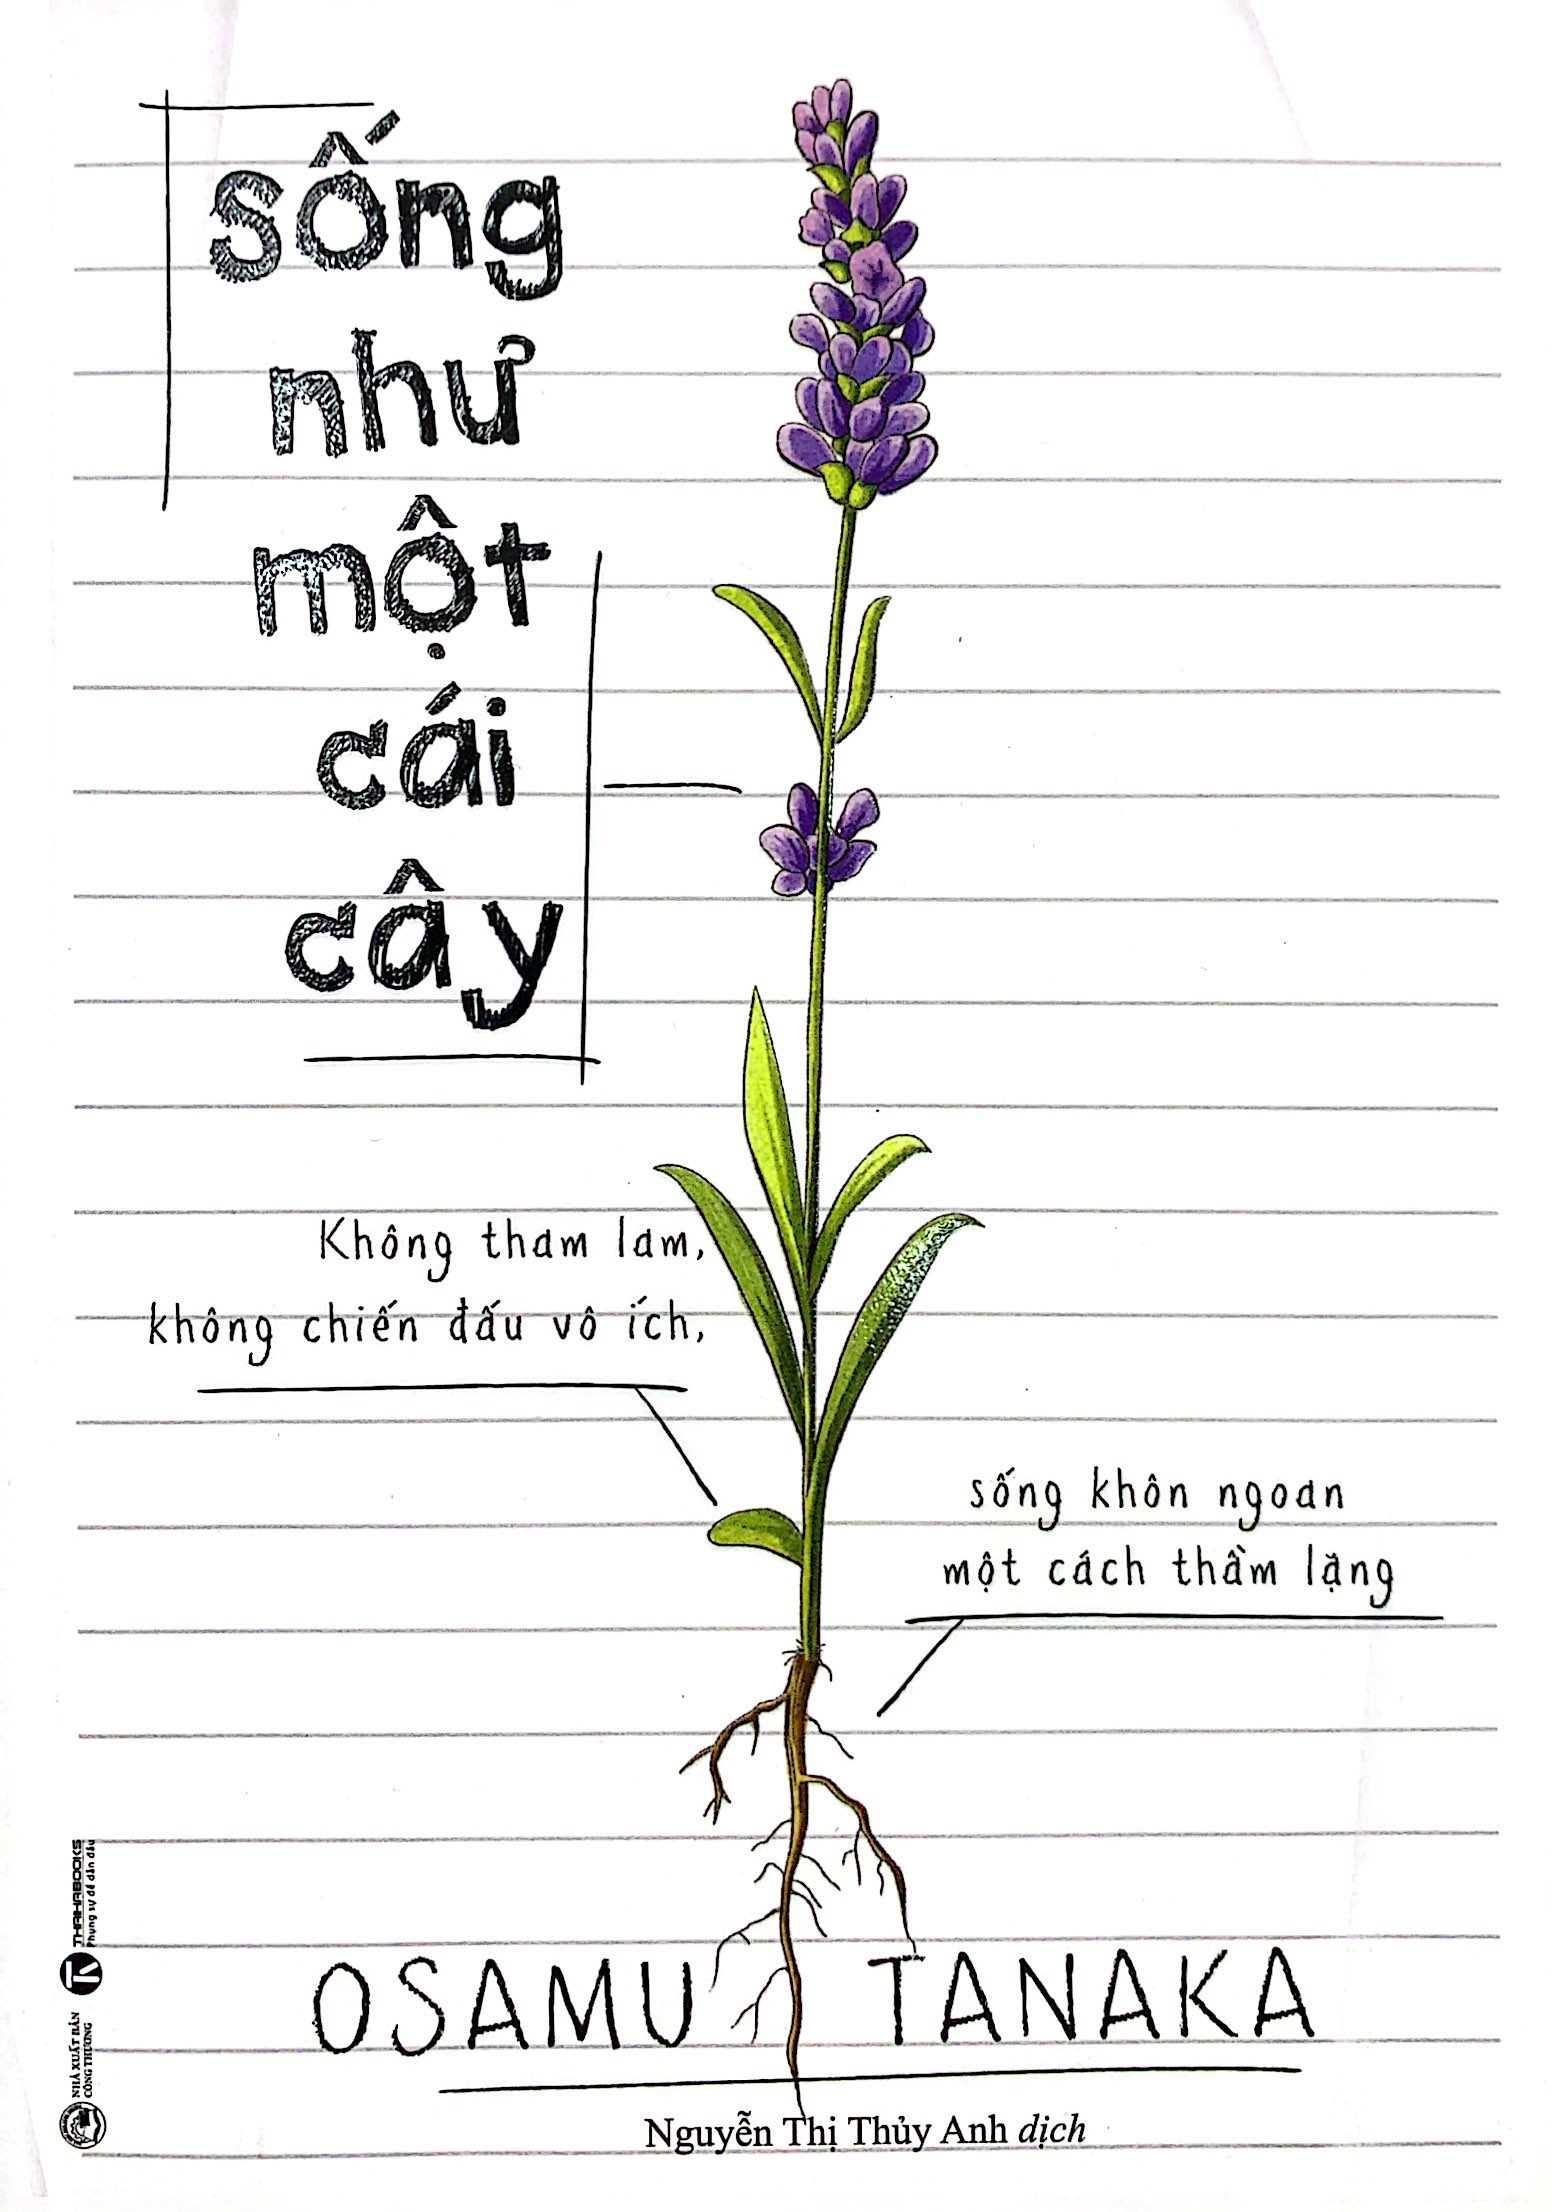 sống
như
một
cái
cây
Không tham lam,
không chiến đấu vô ích,
sống khôn ngoan
một cách thầm lặng
OSAMU TANAKA
Nguyễn Thị Thủy Anh dịch
THAIHABOOKS
Phụng sự để dẫn đầu
NHÀ XUẤT BẢN
CÔNG THƯƠNG